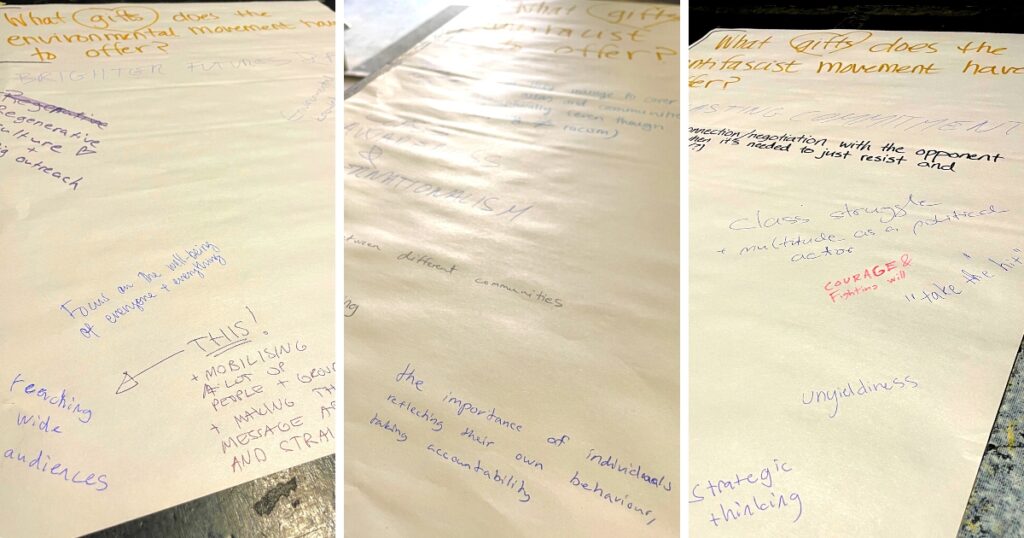 What gifts does the
environmental movement have
to offer?
BRIGHTER futures
Regenerative
Regenerative
culture
+
big outreach
Focus on the well-being
of everyone + everything
THIS!
+ MOBILISING
A LOT OF
PEOPLE + GROU
+ MAKING TH
MESSAGE
AND STRAI
reaching
wide
audiences
What gifts
to offer?
manage to cover
areas and communities
even though
of racism)
&
RNATIONALISM
between different communities
the importance of individuals
reflecting their own behaviour,
taking accountability
What gifts does the
antifascist movement have
offer?
ASTING COMMITMENT
onnection/negotiation with the opponent
when it's needed to just resist and
Class struggle
+ multitude as a political
actor
COURAGE &
Fighting will
"take the hit"
unyieldiness
Strategic
thinking